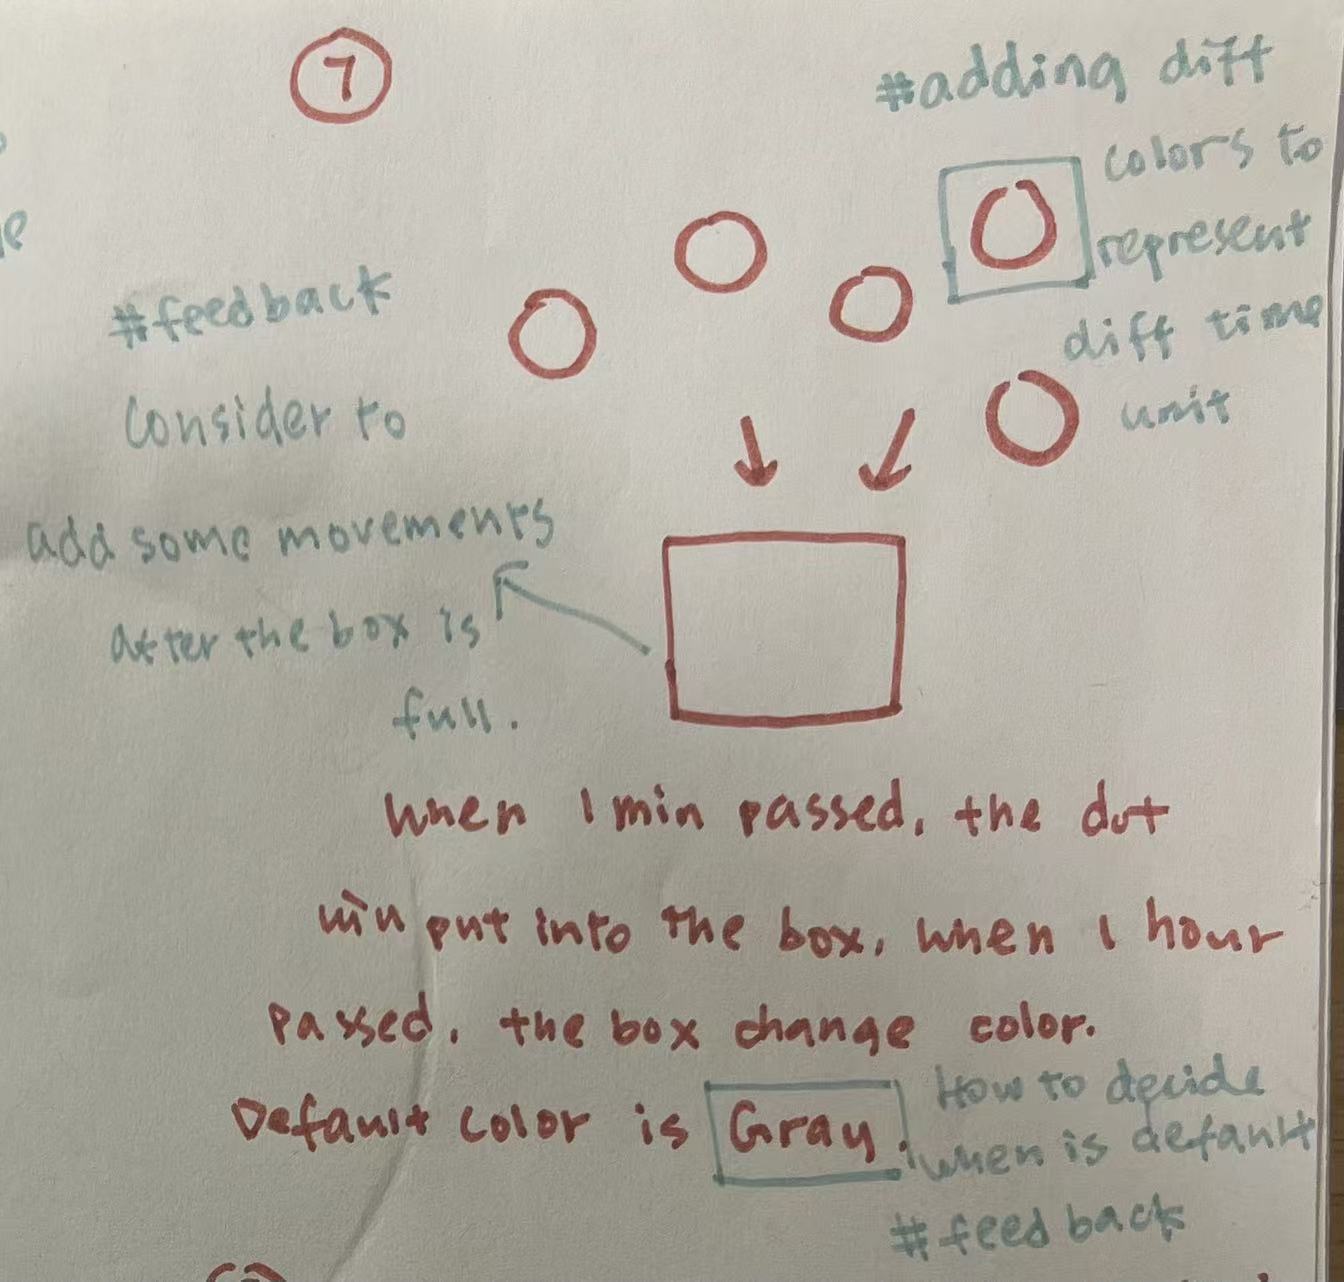 7
#adding diff
colors to
represent
diff time
unit
#feedback
Consider to
add some movements
after the box is
full.
When 1 min passed, the dot
will put into the box, when 1 hour
passed, the box change color.
Default color is Gray.
How to decide
when is default
#feedback